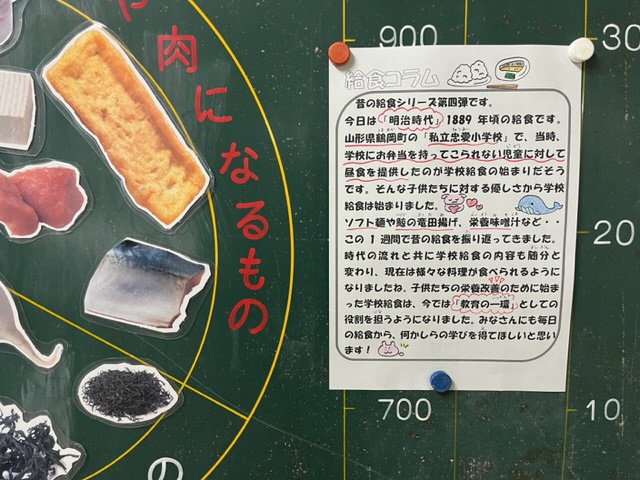 や肉になるもの
の
900
30
20
700
10
給食コラム
昔の給食シリーズ第四弾です。
今日は「明治時代」1889年頃の給食です。
山形県鶴岡町の「私立忠愛小学校」で、当時、
学校にお弁当を持ってこられない児童に対して
昼食を提供したのが学校給食の始まりだそう
です。そんな子供たちに対する優しさから学校
給食は始まりました。
ソフト麺や鯨の竜田揚げ、栄養味噌汁など・・
この1週間で昔の給食を振り返ってきました。
時代の流れと共に学校給食の内容も随分と
変わり、現在は様々な料理が食べられるように
なりましたね。子供たちの栄養改善のために始ま
った学校給食は、今では「教育の一環」としての
役割を担うようになりました。みなさんにも毎日
の給食から、何かしらの学びを得てほしいと思い
ます！